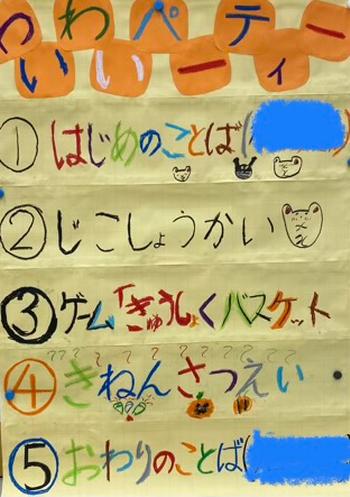 わいわいペーティー
①はじめのことば(
②じこしょうかい
③ゲーム「きゅうしょくバスケット
④きねんさつえい
⑤おわりのことば(